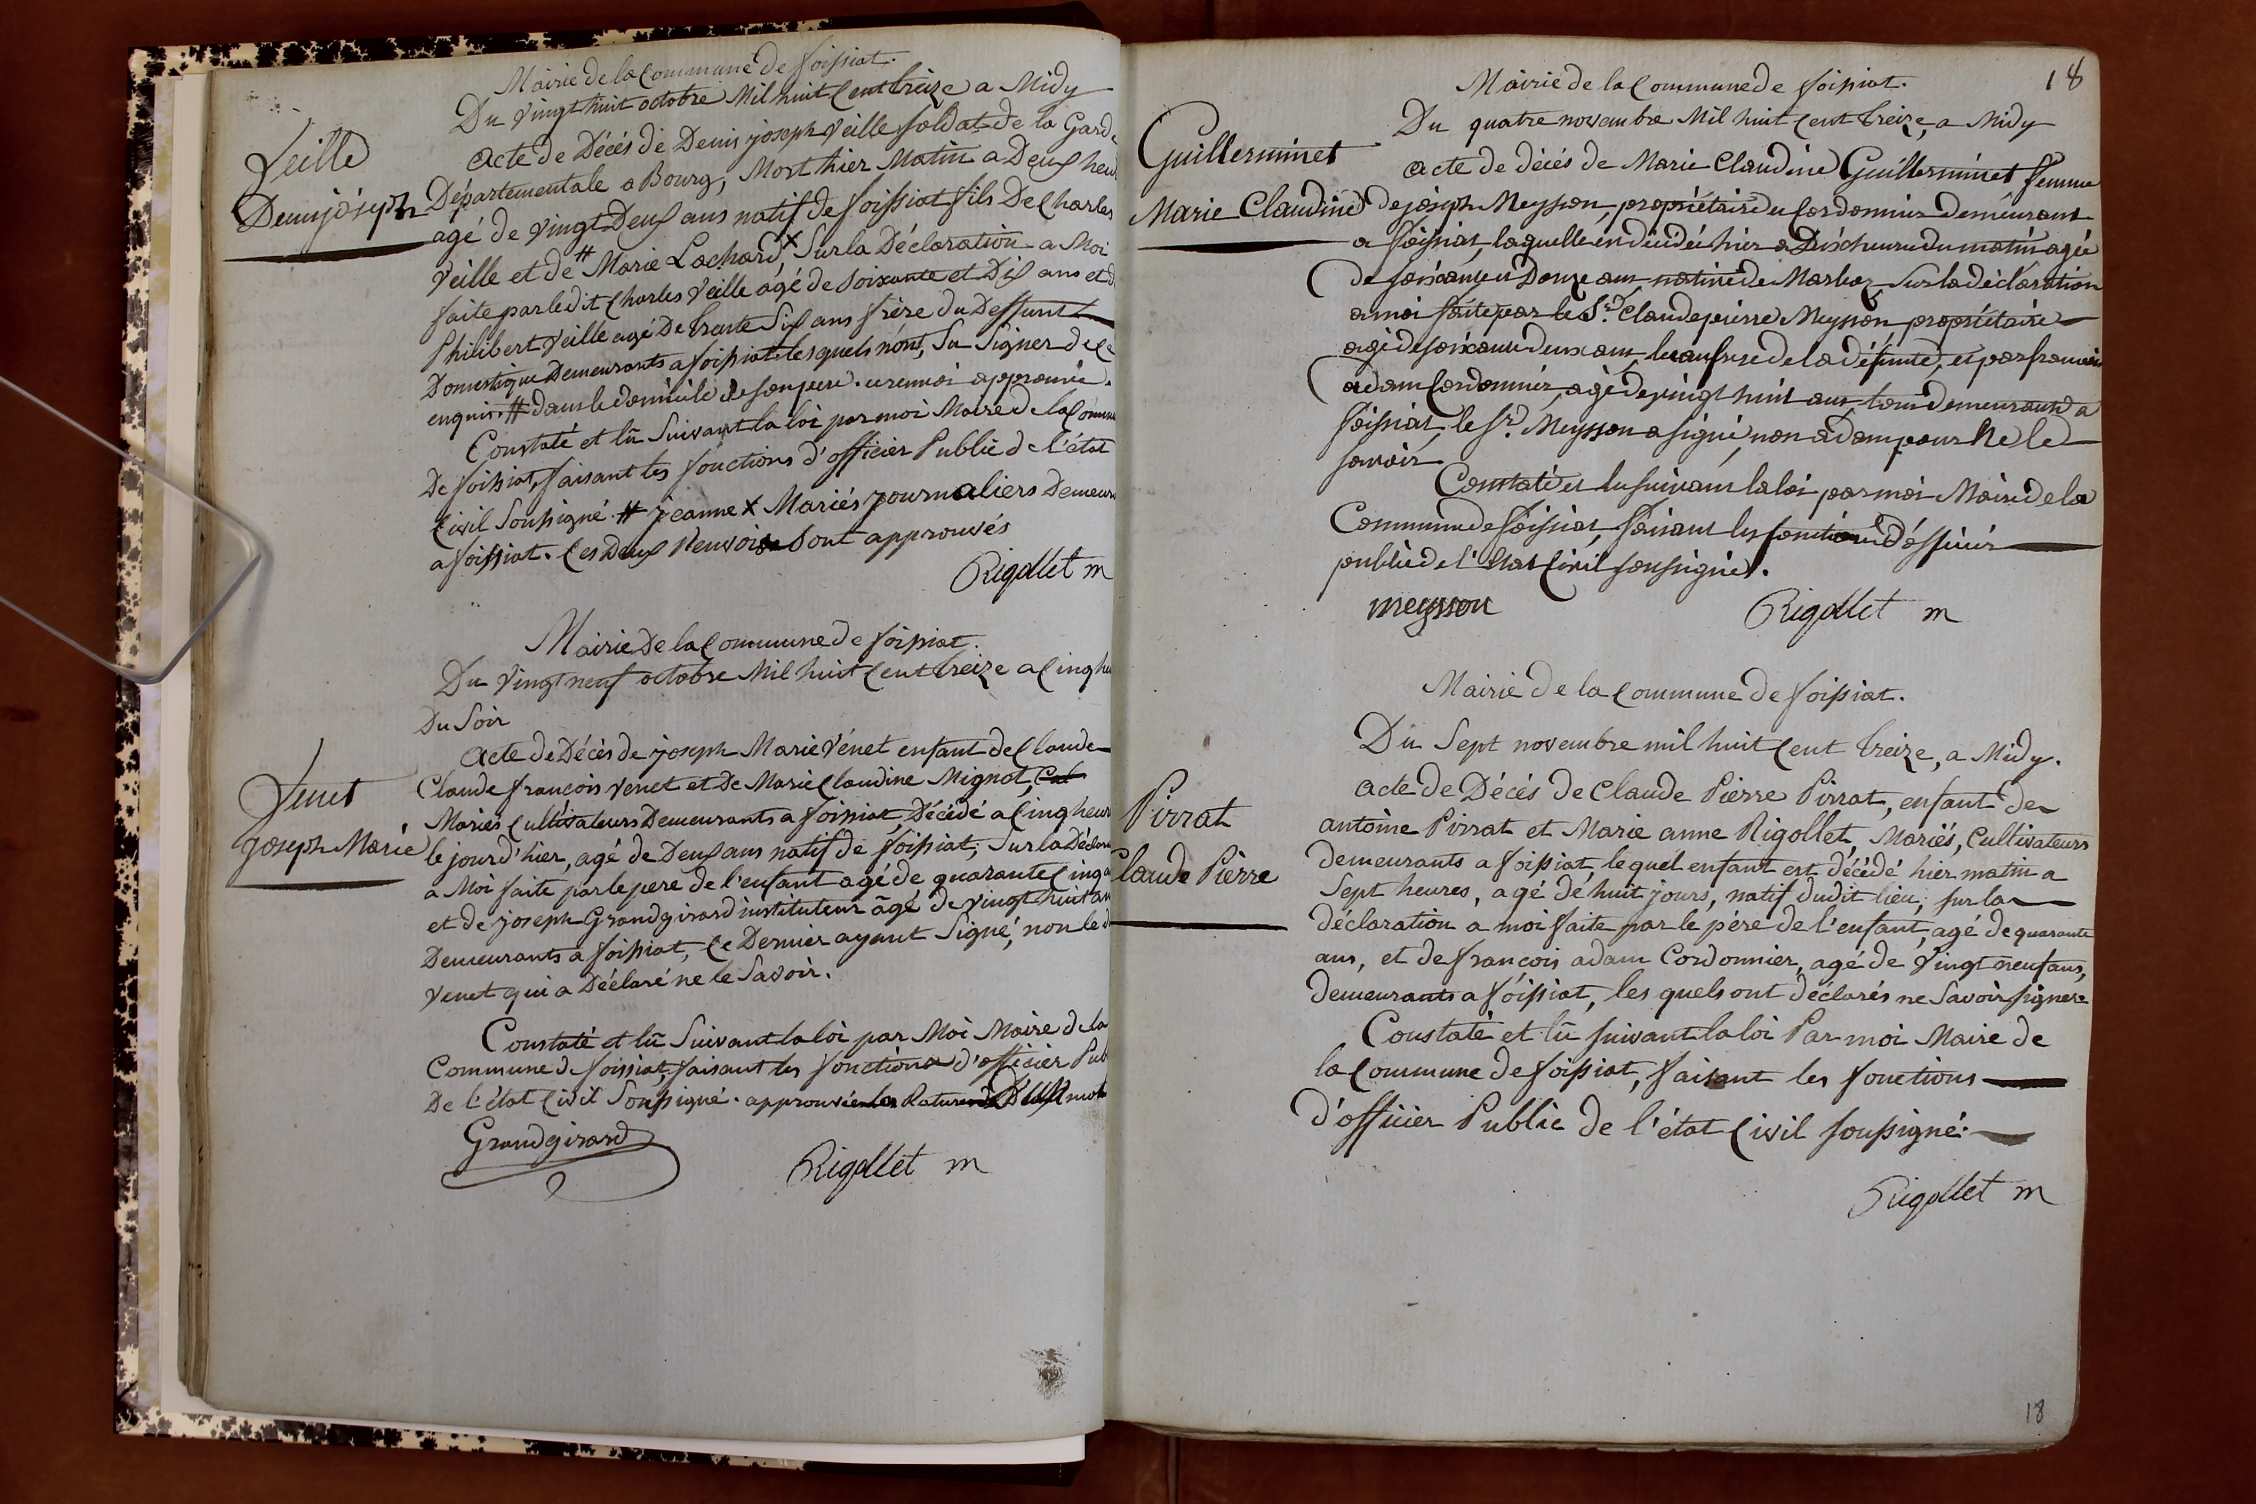 Mairie de la Commune de foissiat.
Du vingt huit octobre Mil huit Cent treize a Midy
Veille
Denis joseph
acte de Décés de Denis joseph veille soldat de la Garde
Départementale a Bourg, Mort hier Matin a Deux heu
agé de vingt Deux ans natif de foissiat fils De Charles
veille et de # Marie Lachard x Sur la Déclaration a Moi
faite par ledit Charles veille agé de Soixante et Dix ans et d
Philibert veille agé De trente Six ans frère du Deffunt
Domestique Demeurants a foissiat lesquels n'ont Su Signer de ce
enquis. # dans le domicile de son pere. ce renvoi approuvé.
Constaté et lû Suivant la loi par moi Maire de la Commu
De foissiat, faisant les fonctions d'officier Public de l'état
Civil Soussigné # jeanne x Mariés journaliers Demeur
a foissiat. Ces Deux Renvois Sont approuvés
Rigollet m
Mairie De la Commune de foissiat.
Du vingt neuf octobre Mil huit Cent treize a Cinq heu
Du Soir
Venet
joseph Marie
acte de Décès de joseph Marie Vénet enfant de Claude
Claude françois venet et de Marie Claudine Mignot, Cul
Mariés Cultivateurs Demeurants a foissiat Décédé a Cinq heur
le jour d'hier, agé de Deux ans natif de foissiat, Sur la Déclara
a Moi faite par le pere de l'enfant agé de quarante Cinq a
et de joseph Grandgirard instituteur âgé de vingt huit an
Demeurants a foissiat, Ce Dernier ayant Signé, non le d
venet qui a Déclaré ne le Savoir.
Constaté et lû Suivant la loi par Moi Maire de la
Commune de foissiat, faisant les fonctions d'officier Pub
De l'état Civil Soussigné. approuvée la Rature de Deux mots
Grandgirard
Rigollet m
18
Mairie de la Commune de foissiat.
Du quatre novembre Mil huit Cent treize, a Midy
Guilleminet
Marie Claudine
acte de décés de Marie Claudine Guilleminet femme
de joseph Meysson, propriétaire et cordonnier demeurant
a foissiat, laquelle en décédée hier a Dix heure du matin agée
de soixante et Douze ans native de Marboz, sur la déclaration
a moi faite par le Sr. Claude pierre Meysson propriétaire
agé de soixante deux ans, beaufrere de la défunte, et par francois
adam Cordonnier, agé de vingt huit ans, tous demeurants a
foissiat, le Sr. Meysson a signé, non adam pour Ne le
savoir
Constaté et lu suivant la loi par moi Maire de la
Commune de foissiat, faisant les fonctions d'officier
public de l'état Civil soussigné.
meysson
Rigollet m
Mairie de la Commune de foissiat.
Du Sept novembre mil huit Cent treize, a Midy.
Pirrat
Claude Pierre
acte de Décés de Claude Pierre Pirrat, enfant de
antoine Pirrat et Marie anne Rigollet, Mariés, Cultivateurs
demeurants a foissiat, le quel enfant est décédé hier matin a
Sept heures, agé de huit jours, natif dudit lieu, sur la
déclaration a moi faite par le pére de l'enfant, agé de quarante
ans, et de françois adam Cordonnier, agé de vingt neuf ans,
demeurants a foissiat, les quels ont déclarés ne Savoir signere
Constaté et lû suivant la loi Par moi Maire de
la Commune de foissiat, faisant les fonctions
d'officier Public de l'état Civil soussigné.
Rigollet m
18